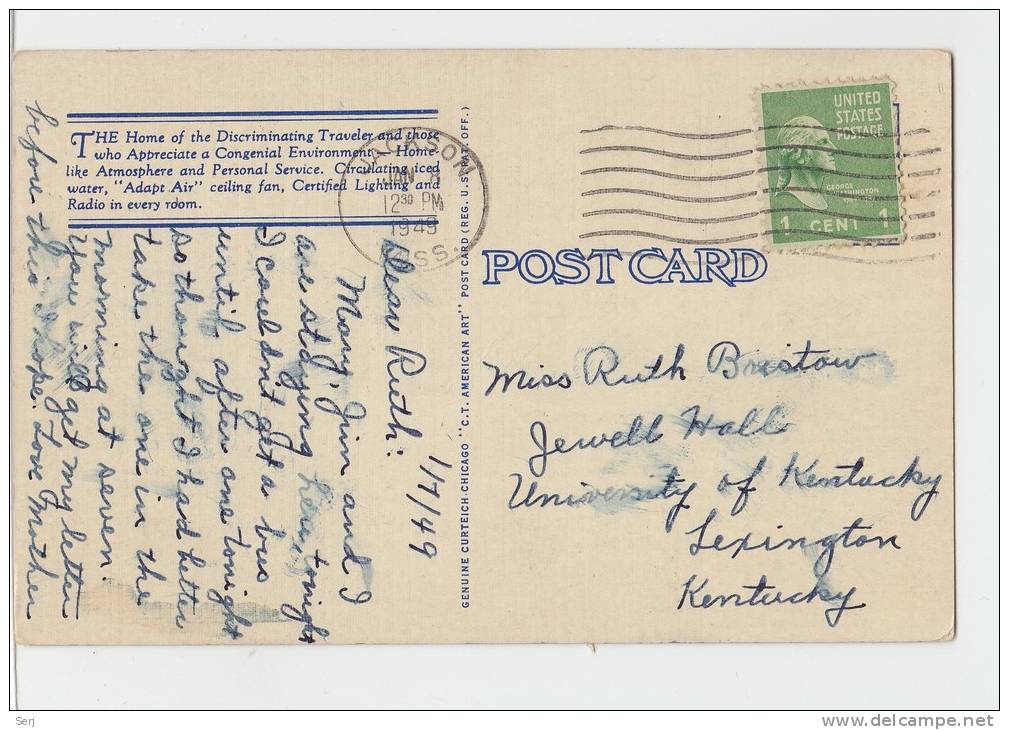 THE Home of the Discriminating Traveler and those
who Appreciate a Congenial Environment. Home-
like Atmosphere and Personal Service. Circulating iced
water, "Adapt Air" ceiling fan, Certified Lighting and
Radio in every room.
JACKSON
JAN 8
12 30 PM
1949
MISS.
UNITED
STATES
POSTAGE
GEORGE
WASHINGTON
1 CENT 1
POST CARD
GENUINE CURTEICH-CHICAGO "C.T. AMERICAN ART" POST CARD (REG. U.S. PAT. OFF.)
1/7/49
Dear Ruth:
Mary, Jim and I
are staying here tonight
I couldn't get a bus
until after one tonight
so thought I had better
take the one in the
morning at seven.
You will get my letter
before this I hope. Love Mother
Miss Ruth Bristow
Jewell Hall
University of Kentucky
Lexington
Kentucky
Serj
www.delcampe.net